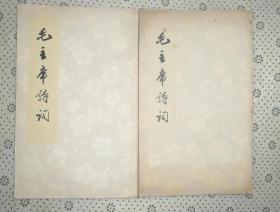 毛主席诗词
毛主席诗词